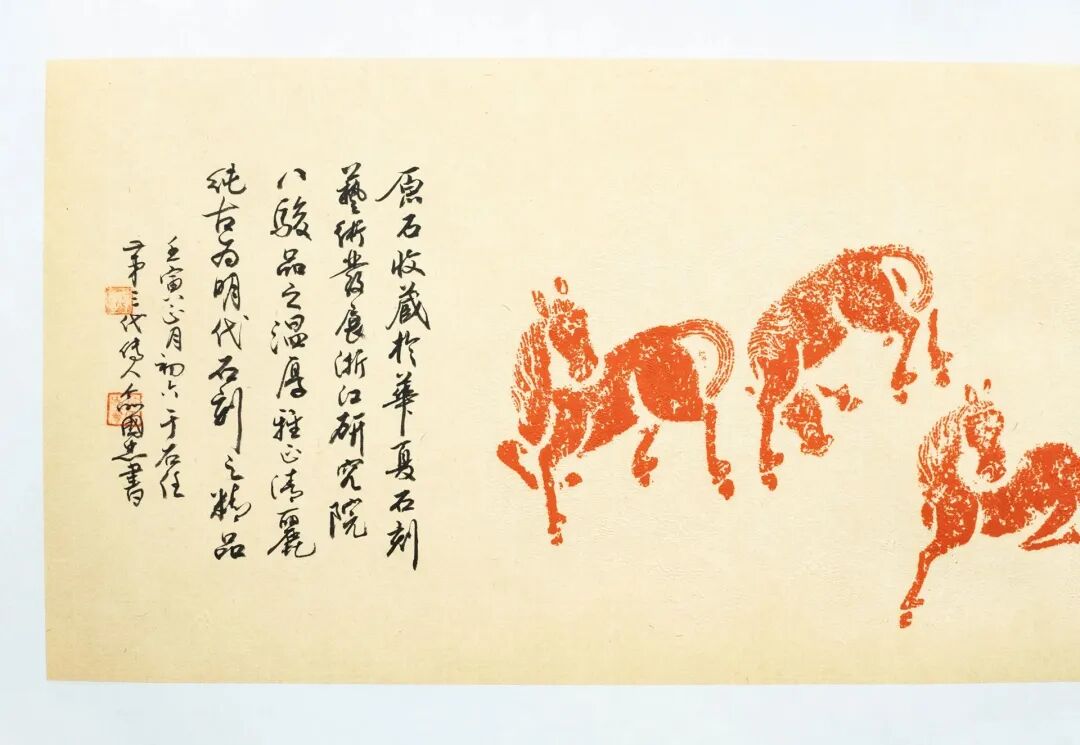 原石收藏於華夏石刻
藝術發展浙江研究院
八駿品之溫厚雅正清麗
純古为明代石刻之精品
壬寅正月初六于右任
第三代傳人 國忠書